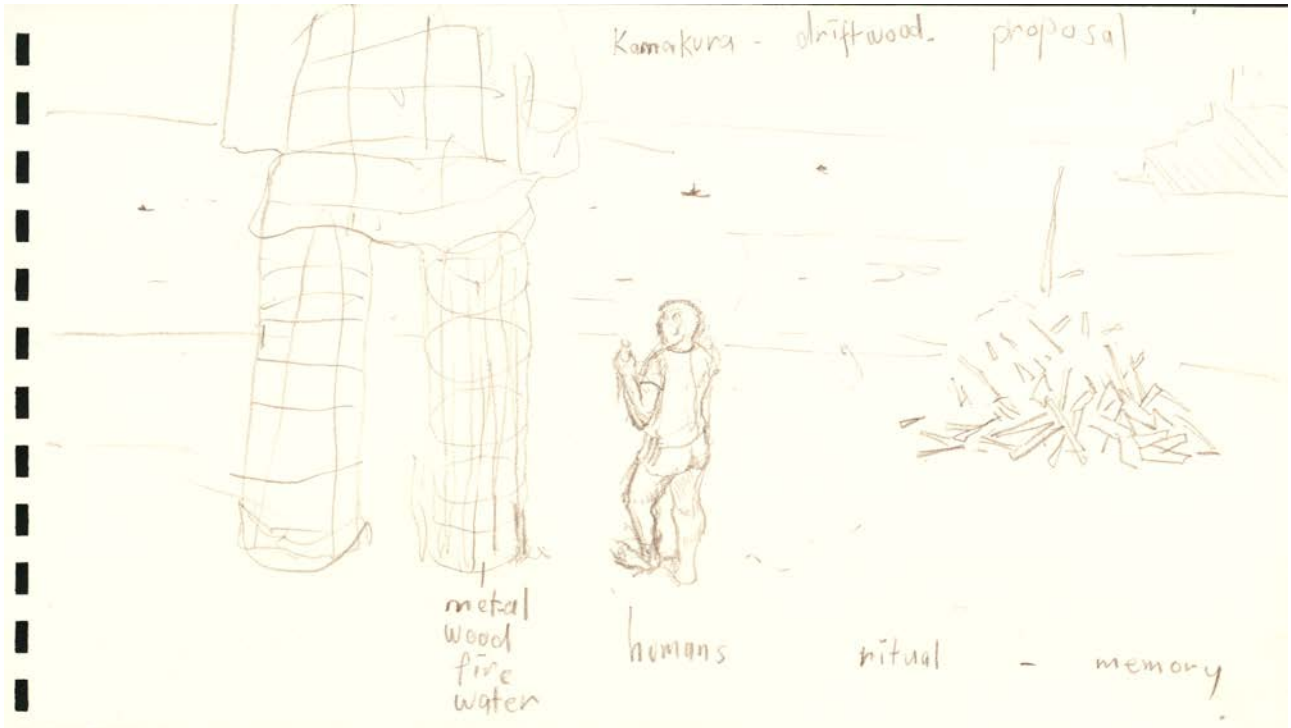 Kamakura - driftwood. proposal
metal
wood
fire
water
humans
ritual - memory